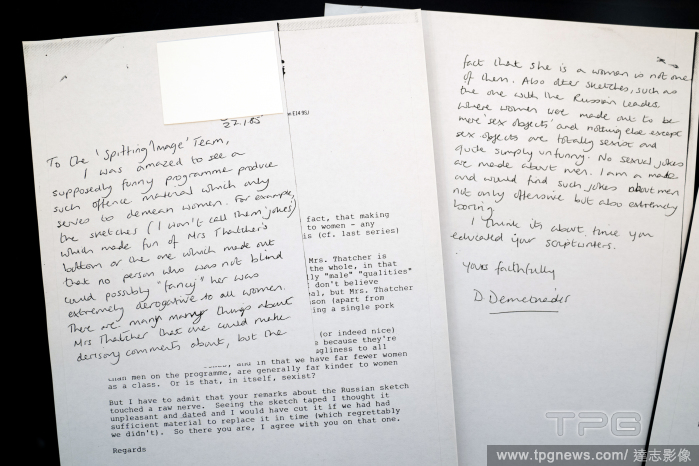 22.1.85
To the 'Spitting Image' Team,
I was amazed to see a
supposedly funny programme produce
such offence material which only
serves to demean women. For example,
the sketches (I won't call them jokes)
which made fun of Mrs Thatcher's
bottom or the one which made out
that no person who was not blind
could possibly "fancy" her was
extremely derogatory to all women.
There are many many things about
Mrs Thatcher that one could make
derisory comments about, but the
fact that she is a woman is not one
of them. Also other sketches, such as
the one with the Russian Leader,
where women were made out to be
mere 'sex objects' and nothing else except
sex objects are totally sexist and
quite simply unfunny. No sexual jokes
are made about men. I am a male
and would find such jokes about men
not only offensive but also extremely
boring.
I think its about time you
educated your scriptwriters.
Yours faithfully
D. Demetriader
E14 9SU
fact, that making
to women - any
is (cf. last series)
Mrs. Thatcher is
the whole, in that
"male" "qualities"
don't believe
but Mrs. Thatcher
(apart from
a single pork
(or indeed nice)
because they're
ugliness to all
and in that we have far fewer women
than men on the programme, are generally far kinder to women
as a class. Or is that, in itself, sexist?
But I have to admit that your remarks about the Russian sketch
touched a raw nerve. Seeing the sketch taped I thought it
unpleasant and dated and I would have cut it if we had had
sufficient material to replace it in time (which regrettably
we didn't). So there you are, I agree with you on that one.
Regards
TPG
www.tpgnews.com/ 達志影像